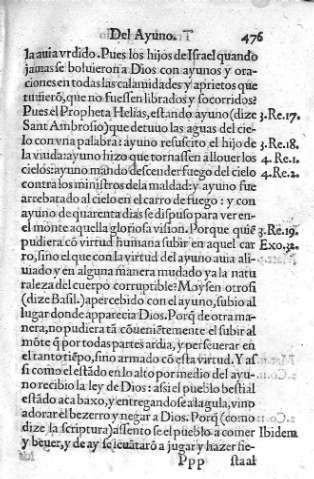 Del Ayuno. 476
la auia vrdido. Pues los hijos de Israel quando
jamas se boluieron a Dios con ayunos y ora-
ciones en todas las calamidades y aprietos que
tuuierõ, que no fuessen librados y socorridos?
Pues el Propheta Helias, estando ayuno (dize 3. Re. 17.
Sant Ambrosio) que detuuo las aguas del cie-
lo con vna palabra: ayuno resuscito el hijo de 3. Re. 18.
la viuda: ayuno hizo que tornassen a llouer los 4. Re. 1.
cielos: ayuno mando descender fuego del cielo 4. Re. 2.
contra los ministros de la maldad: y ayuno fue
arrebatado al cielo en el carro de fuego: y con
ayuno de quarenta dias se dispuso para ver en
el monte aquella gloriosa vision. Porque quiẽ 3. Re. 19.
pudiera cõ virtud humana subir en aquel car Exo. 32.
ro, sino el que con la virtud del ayuno auia ali-
uiado y en alguna manera mudado ya la natu
raleza del cuerpo corruptible? Moysen otrosi
(dize Basil.) apercebido con el ayuno, subio al
lugar donde aparecia Dios. Porq̃ de otra ma-
nera, no pudiera tã cõueniẽtemente el subir al
mõte q̃ por todas partes ardia, y perseuerar en
el tanto tiẽpo, sino armado cõ esta virtud. Y as
si como el estãdo en lo alto por medio del ayu-
no recibio la ley de Dios: assi el pueblo bestial
estãdo aca baxo, y entregandose a la gula, vino
adorar el bezerro y negar a Dios. Porq̃ (como
dize la scriptura) assento se el pueblo a comer Ibidem
y beuer, y de ay se leuãtarõ a jugar y hazer fie-
Ppp staal